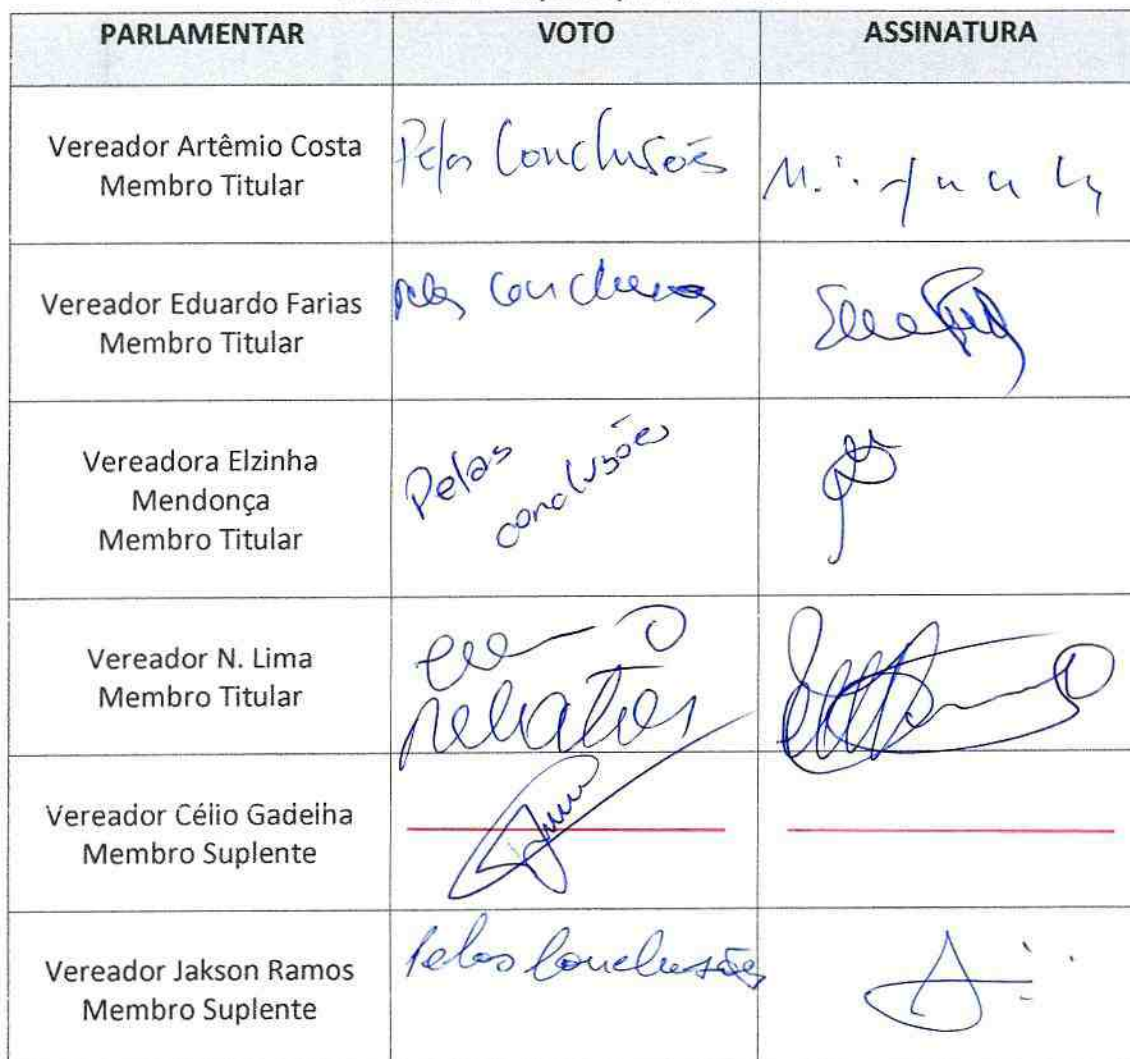 PARLAMENTAR VOTO ASSINATURA
Vereador Artêmio Costa
Membro Titular
Pelas Conclusões
Vereador Eduardo Farias
Membro Titular
pelas conclusões
Vereadora Elzinha
Mendonça
Membro Titular
Pelas
conclusões
Vereador N. Lima
Membro Titular
Vereador Célio Gadelha
Membro Suplente
Vereador Jakson Ramos
Membro Suplente
Pelas Conclusões